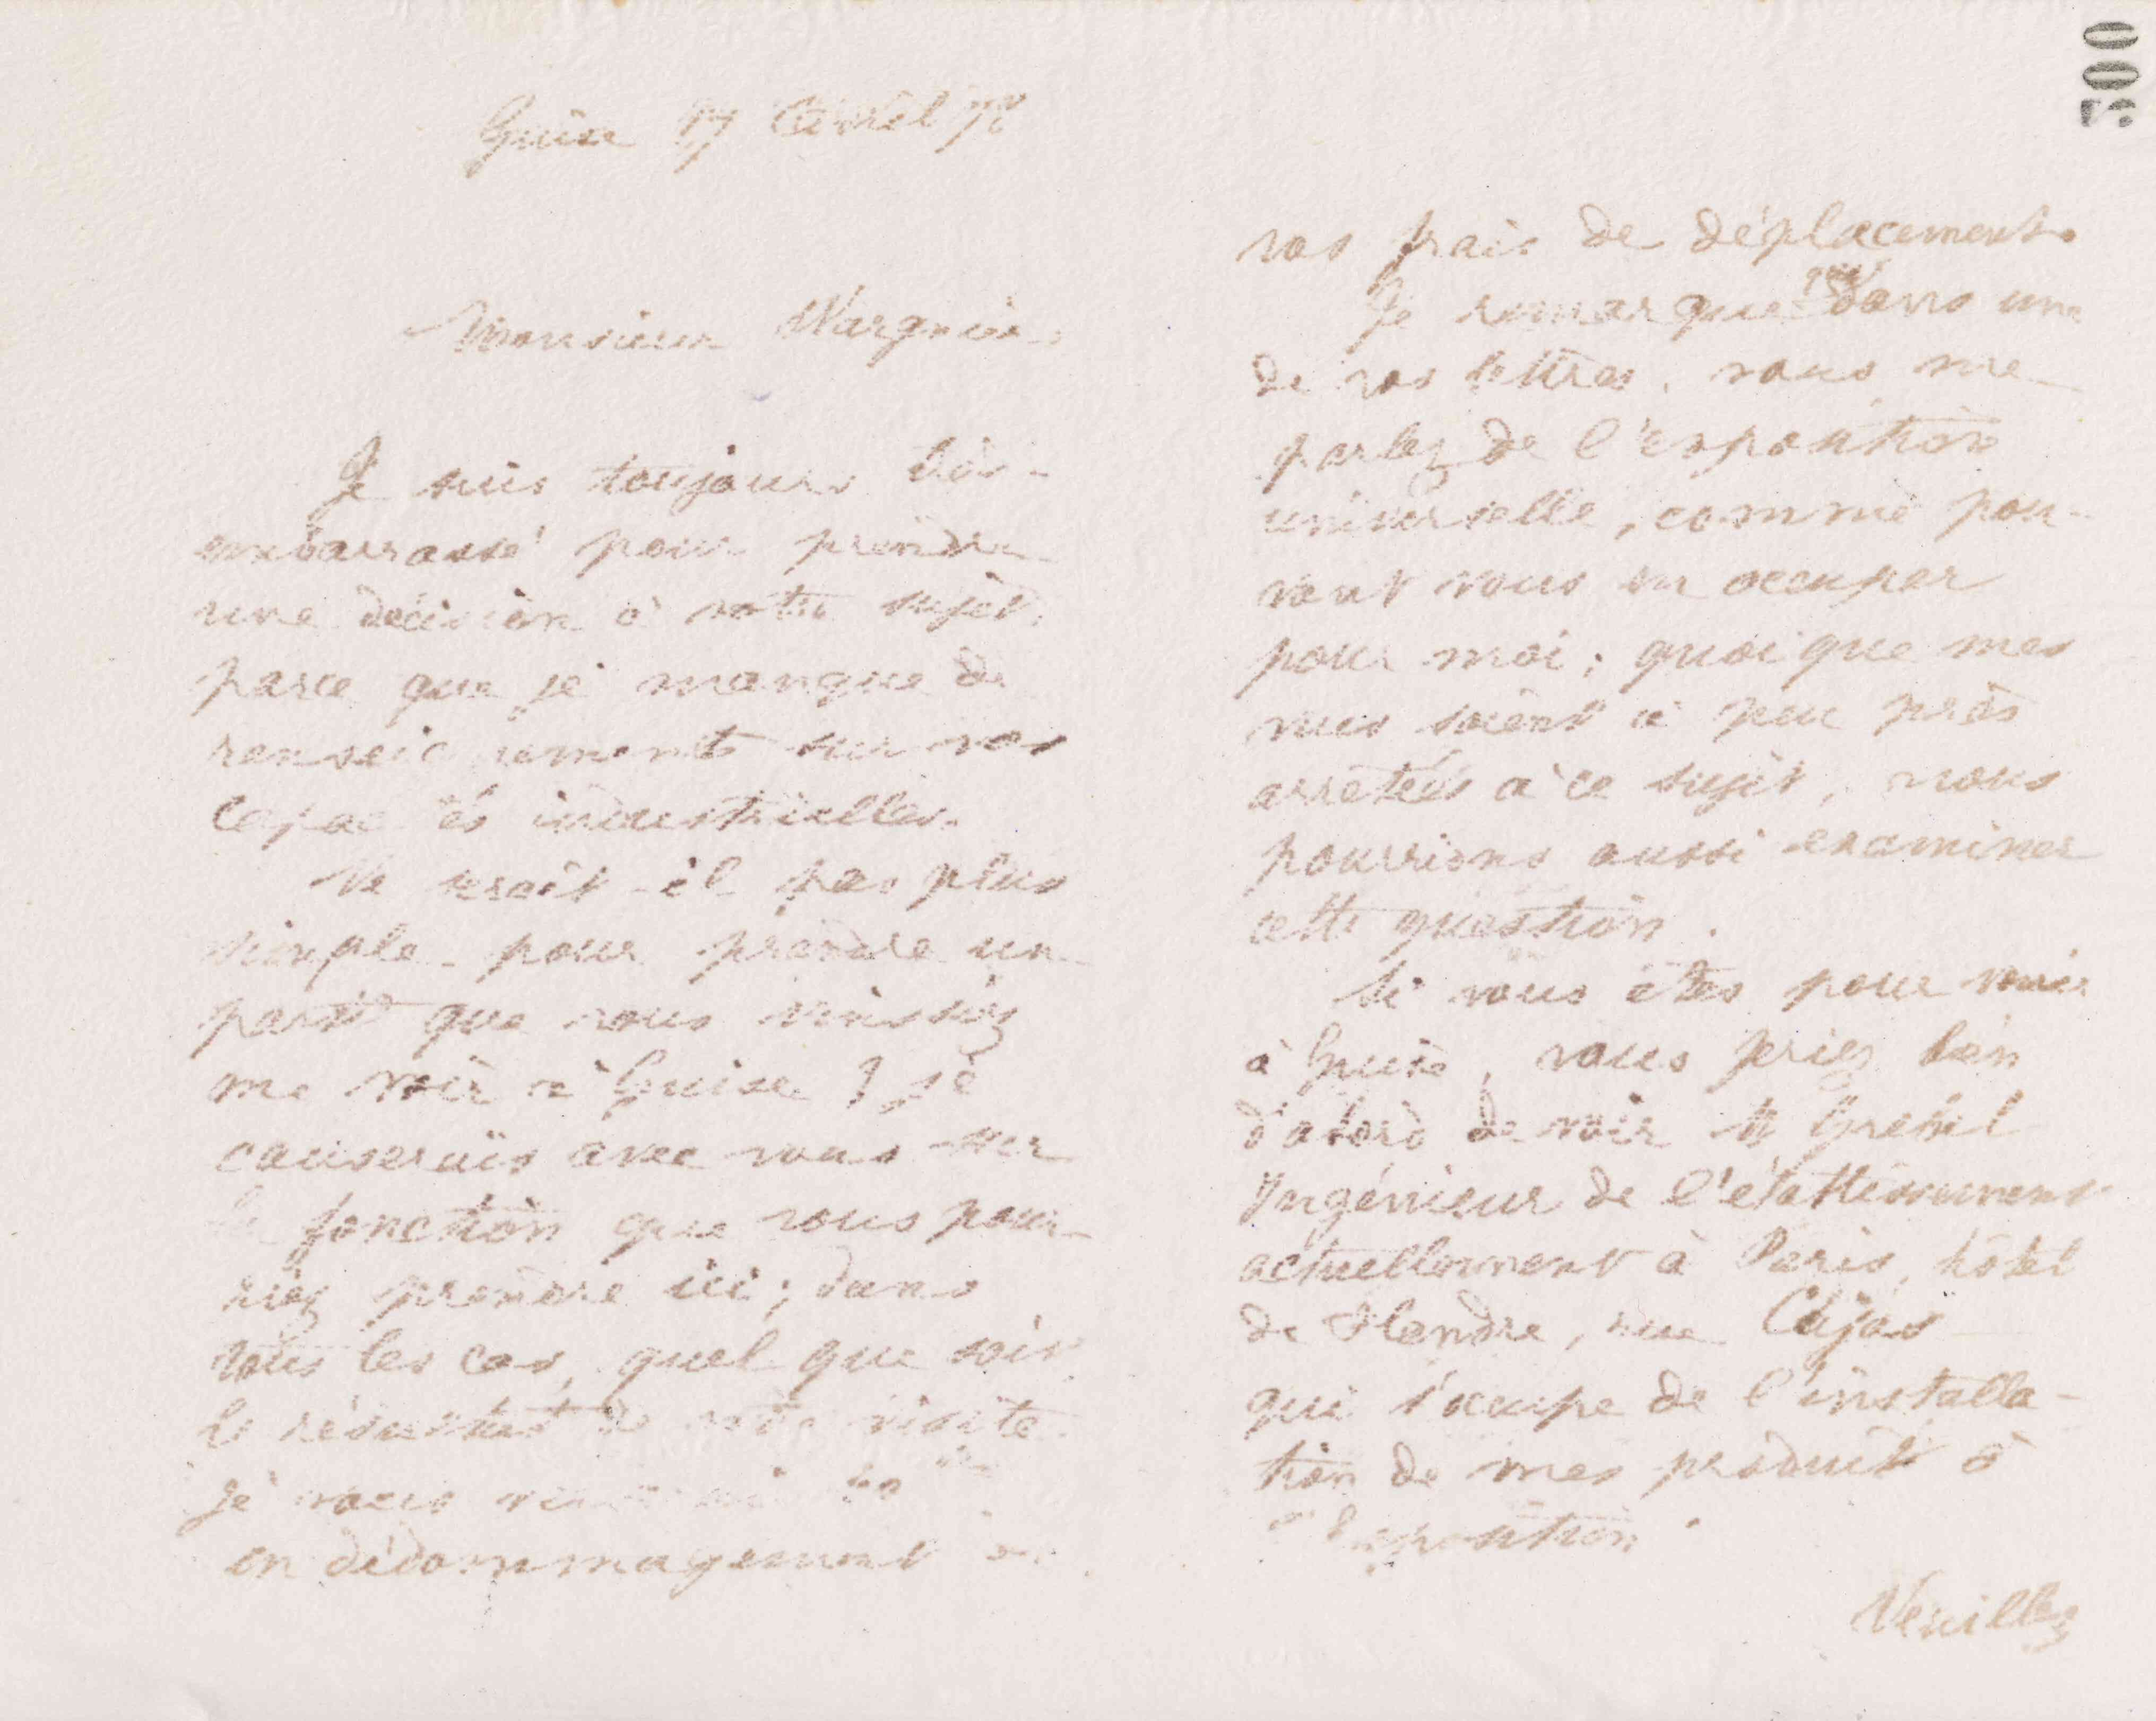 Guise 17 Avril 78
Monsieur
Je suis toujours très
embarrassé pour prendre
une décision à votre sujet,
parce que je manque de
renseignements sur vos
capacités industrielles.
Ne serait-il pas plus
simple pour prendre un
parti que vous vinssiez
me voir à Guise ? je
causerais avec vous sur
la fonction que vous pour-
riez prendre ici ; dans
tous les cas, quel que soit
le résultat de votre visite
je vous
en dédommagement de
vos frais de déplacement.
Je remarque que dans une
de vos lettres, vous me
parlez de l'exposition
universelle, comme pou-
vant vous en occuper
pour moi ; quoique mes
vues soient à peu près
arrêtées à ce sujet, nous
pourrions aussi examiner
cette question.
Si vous êtes pour venir
à Guise, vous feriez bien
d'abord de voir M Grebel
Ingénieur de l'établissement
actuellement à Paris, hôtel
de Flandre, rue Cujas
qui s'occupe de l'installa-
tion de mes produits à
l'exposition.
Veuillez
500